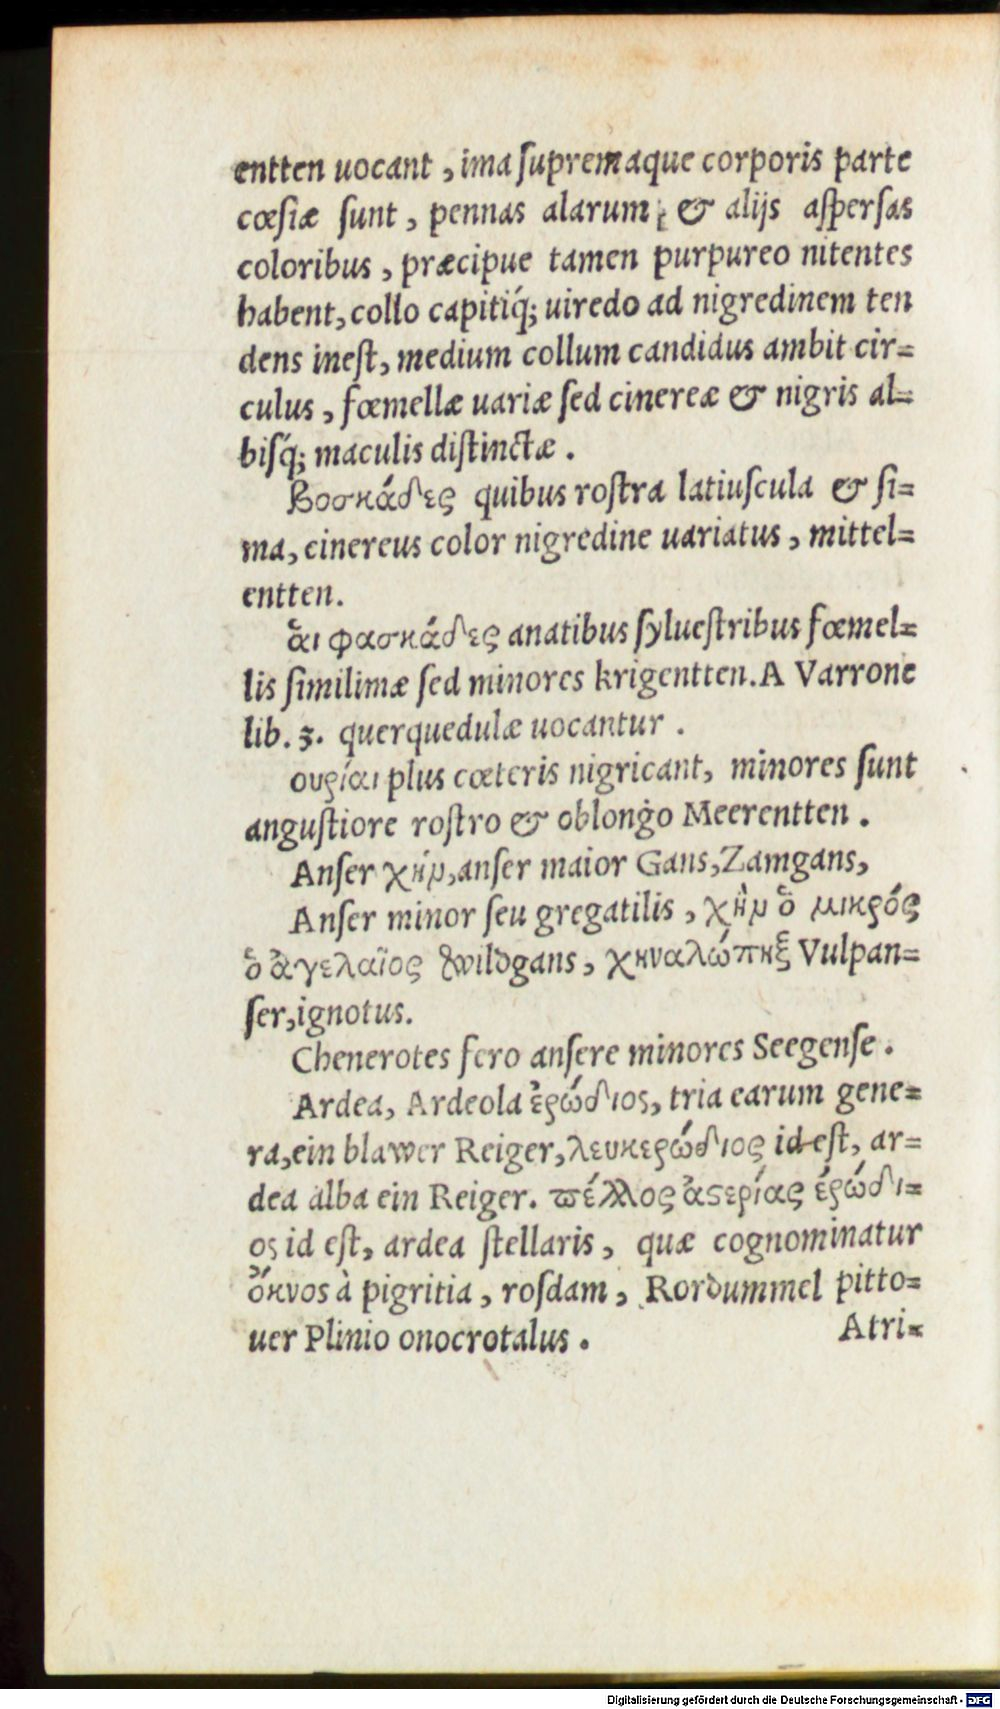 entten uocant, ima supremaque corporis parte
cœsiæ sunt, pennas alarum, & alijs aspersas
coloribus, præcipue tamen purpureo nitentes
habent, collo capitiq́; uiredo ad nigredinem ten
dens inest, medium collum candidus ambit cir=
culus, fœmellæ uariæ sed cinereæ & nigris al=
bisq́; maculis distinctæ.
Βοσκάδες quibus rostra latiuscula & si=
ma, cinereus color nigredine uariatus, mittel=
entten.
ἅι φασκάδες anatibus syluestribus fœmel=
lis similimæ sed minores krigentten. A Varrone
lib. 3. querquedulæ uocantur.
ουρίαι plus cæteris nigricant, minores sunt
angustiore rostro & oblongo Meerentten.
Anser χήν, anser maior Gans, Zamgans,
Anser minor seu gregatilis, χὴν ὃ μικρός
ὃ ἀγελαῖος wildgans, χηναλώπηξ Vulpan=
ser, ignotus.
Chenerotes fero ansere minores Seegense.
Ardea, Ardeola ἐρώδιος, tria earum gene=
ra, ein blawer Reiger, λευκερώδιος id est, ar=
dea alba ein Reiger. πέλλος ἀςερίας ἐρώδι=
ος id est, ardea stellaris, quæ cognominatur
ὄκνος à pigritia, rosdam, Rordummel pitto=
uer Plinio onocrotalus.
Atri=
Digitalisierung gefördert durch die Deutsche Forschungsgemeinschaft - DFG